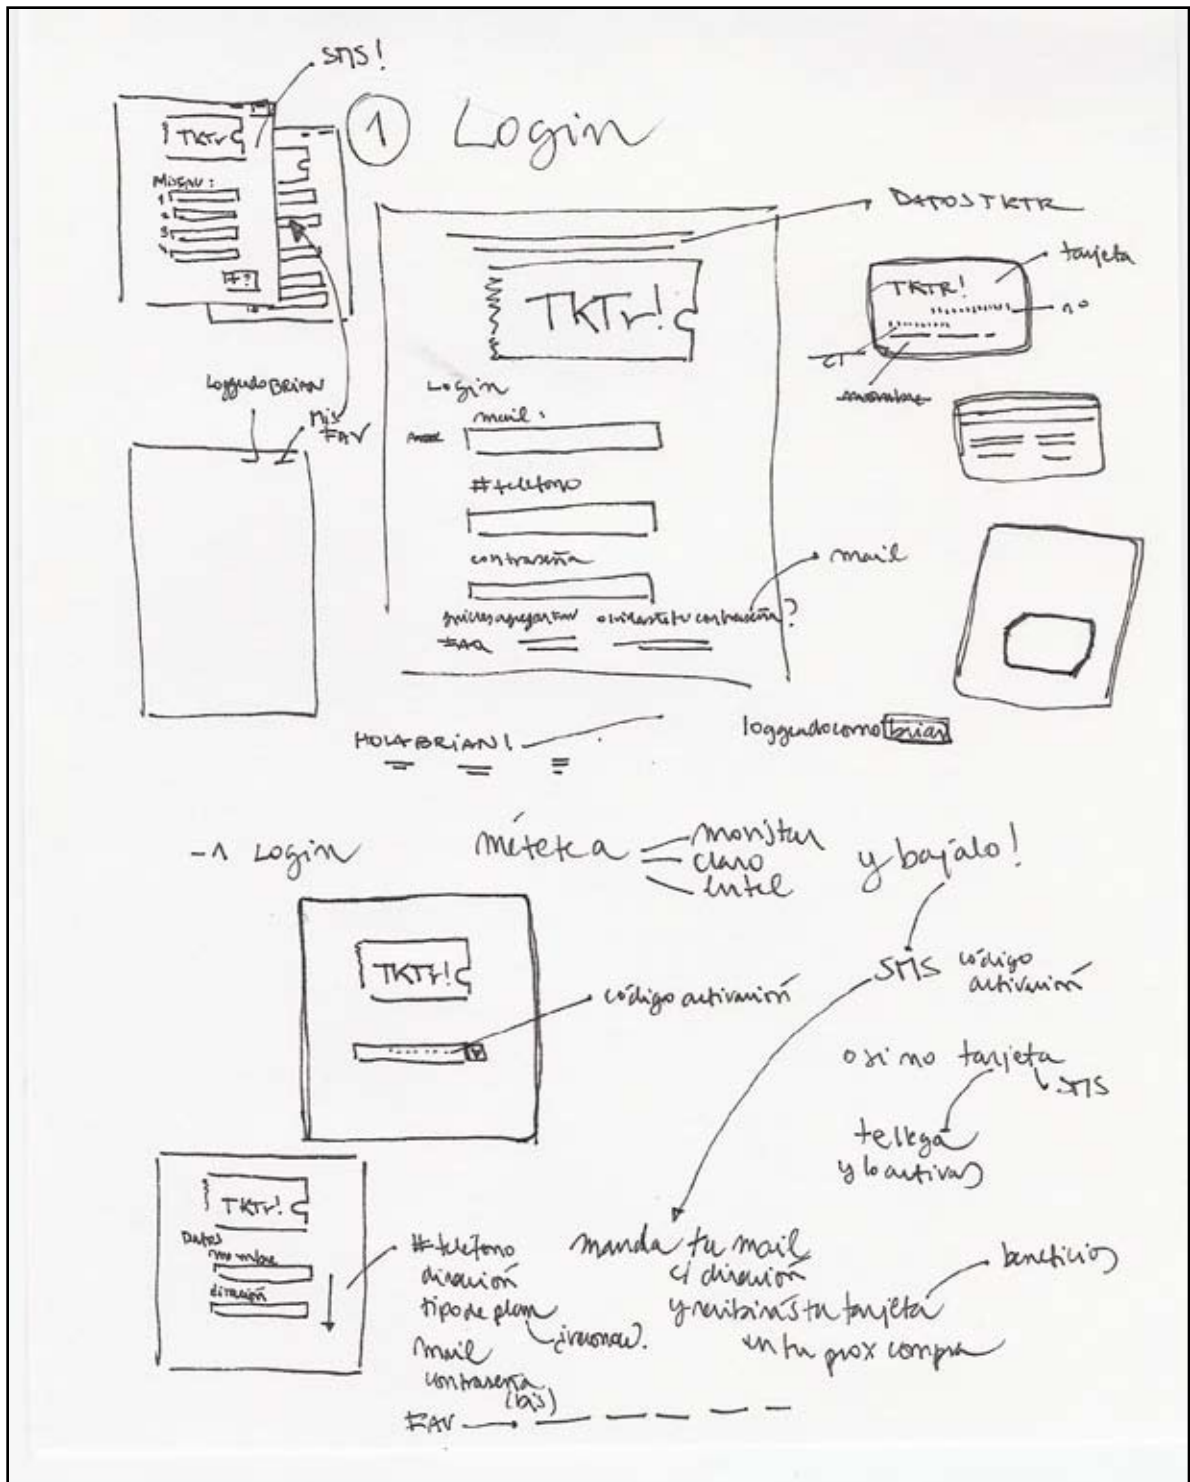 SMS!
1 Login
TKTr
MISENU:
1
2
3
4
+?
DATOS TKTR
tarjeta
TKTR!
nº
CI
nombre
TKTr!
Loggeado BRIAN
Mis
FAV
Login
mail:
#telefono
contraseña
mail
quieres agregar FAV olvidaste tu contraseña?
FAQ
HOLA BRIAN!
loggeado como brian
-1 Login
métete a
movistar
claro
Entel
y bajálo!
TKTr!
código activación
SMS código
activación
o si no tarjeta
SMS
te llega
y lo activas
TKTr!
Datos
nombre
dirección
#telefono
dirección
tipo de plan
mail
contraseña
(bis)
FAV
manda tu mail
c/ dirección
y recibirás tu tarjeta
en tu prox compra
beneficios